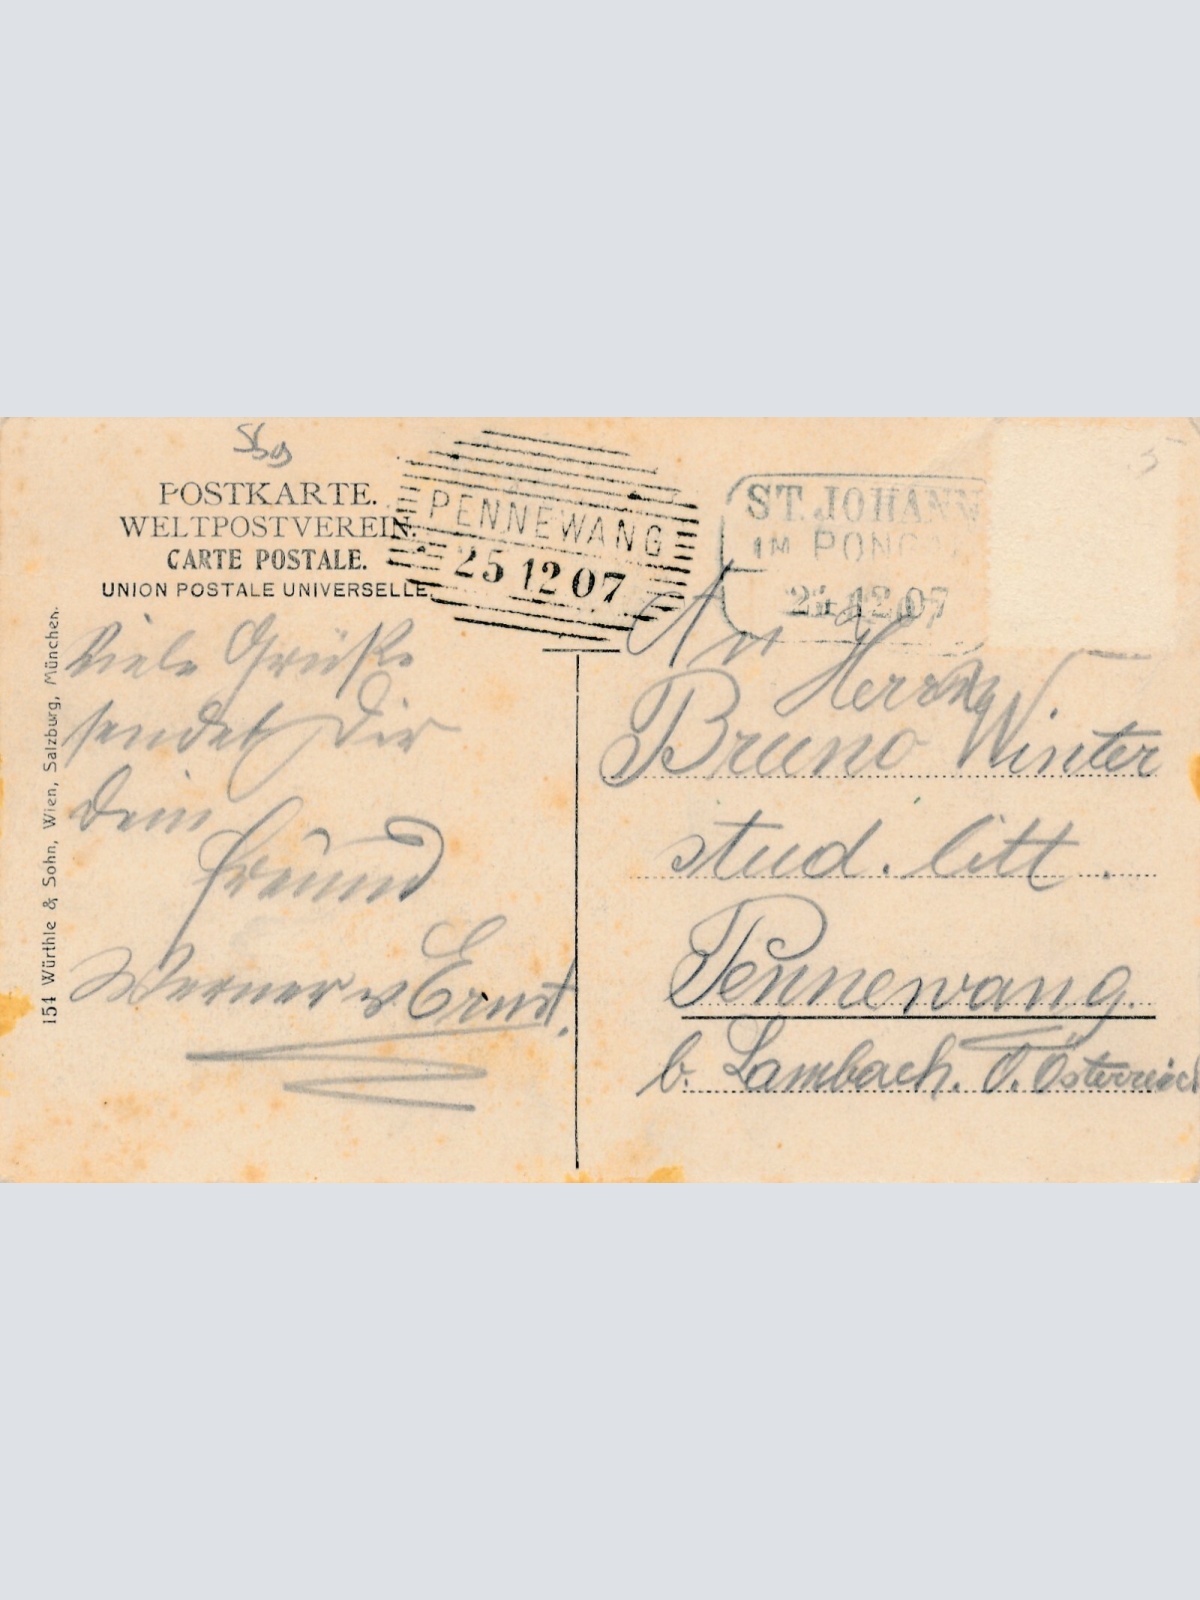 Sbg
POSTKARTE.
WELTPOSTVEREIN.
CARTE POSTALE.
UNION POSTALE UNIVERSELLE.
PENNEWANG
25 12 07
ST. JOHANN
IM PONG
25 12 07
Viele Grüße
sendet Dir
Dein
Freund
Werner v Ernst.
An
Herrn
Bruno Winter
stud. litt.
Pennewang.
b. Lambach. O. Österreich
154 Würthle & Sohn, Wien, Salzburg, München.